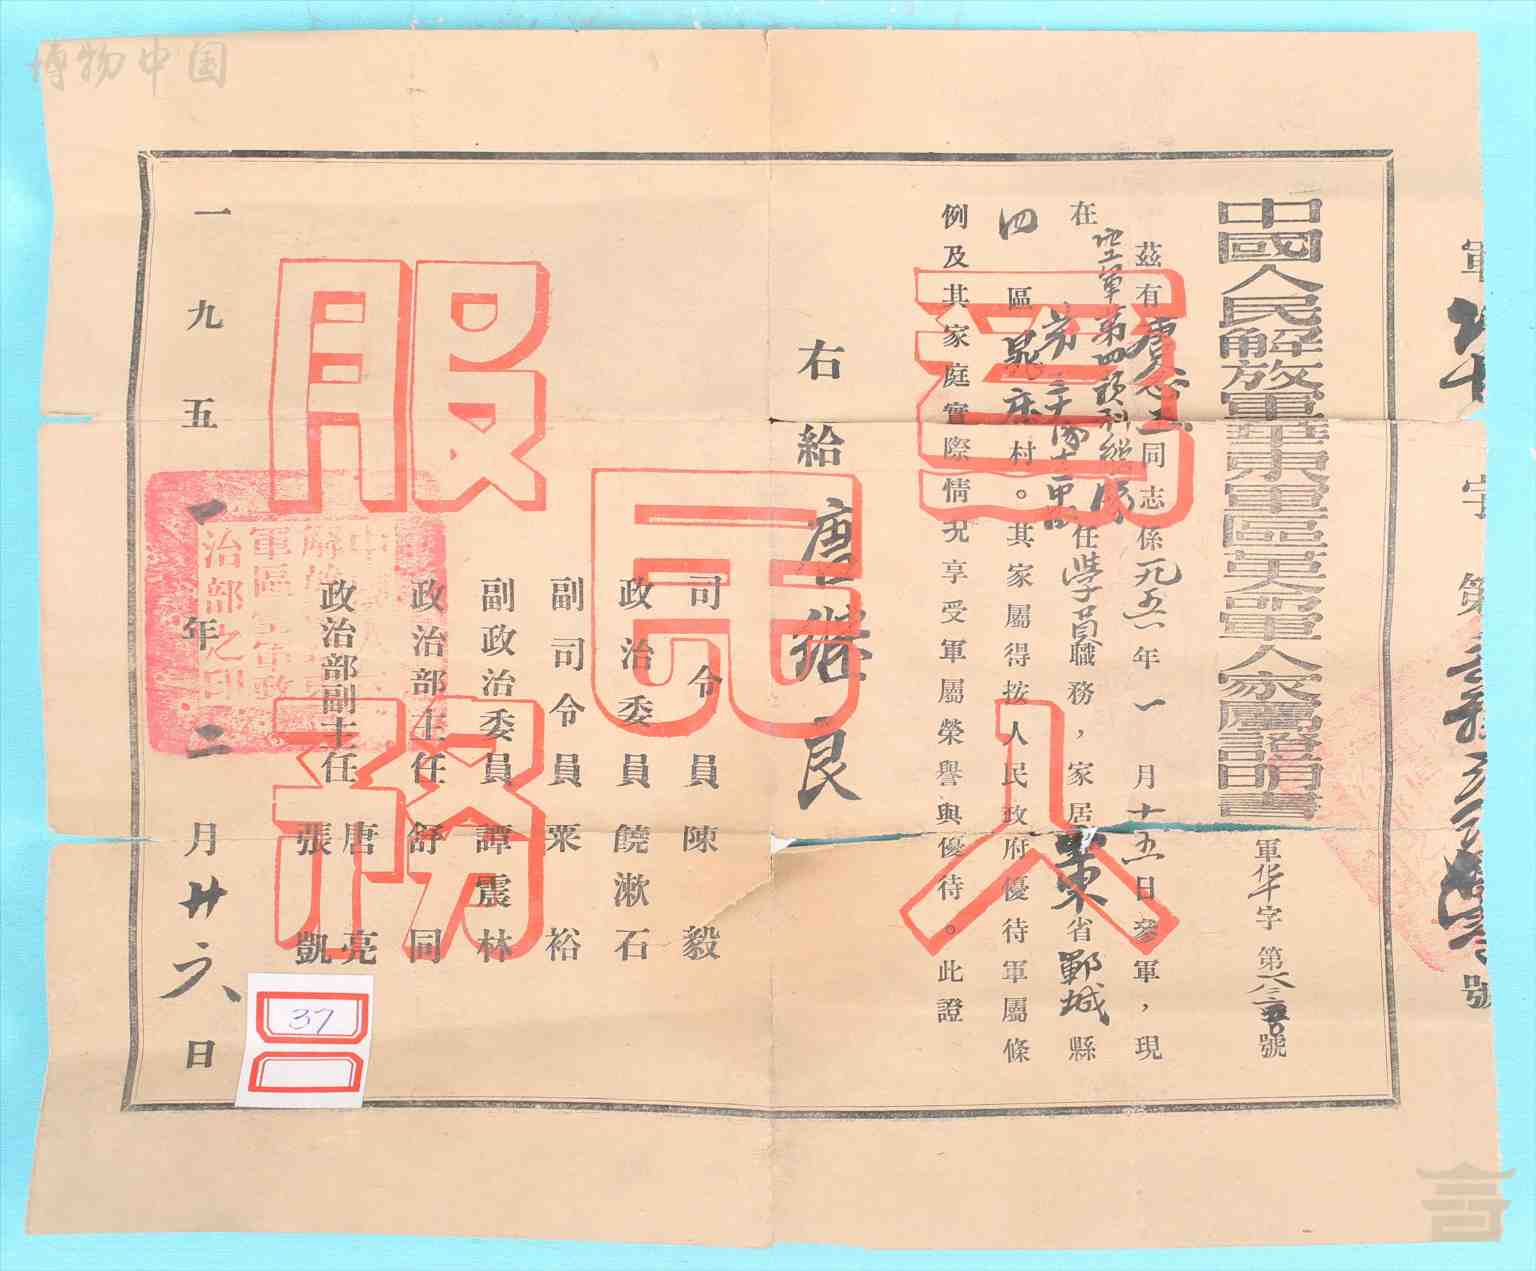 中國人民解放軍華東軍區革命軍人家屬證明書
軍华字第
號
茲有唐同志係一九五一年一月十五日參軍，現
在空軍第四預科總隊
任學員職務，家居東省鄆城縣
四區庄村。其家屬得按人民政府優待軍屬條
例及其家庭實際情況享受軍屬榮譽與優待。此證
右給
唐繼良
司令員 陳毅
政治委員 饒漱石
副司令員 粟裕
副政治委員 譚震林
政治部主任 舒同
政治部副主任 唐亮
張凱
一九五一年二月廿六日
爲人民服務
治部之印
軍區
37
字第
號
博物中国